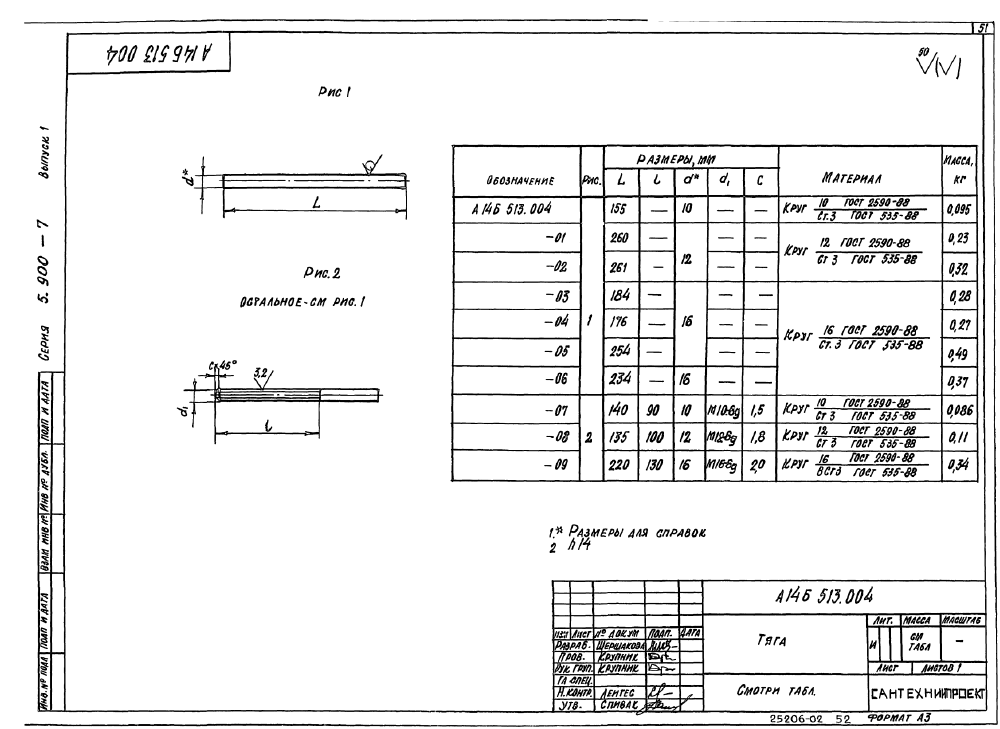 51
А14Б 513 004
50
Рис 1
d*
L
Рис. 2
Остальное - см рис. 1
c×45°
3,2
d₁
l
Выпуск 1
Серия 5.900-7
Обозначение | Рис. | Размеры, мм | Материал | Масса, кг
L | l | d* | d₁ | c
А14Б 513.004 | 1 | 155 | — | 10 | — | — | Круг 10 ГОСТ 2590-88 / Ст.3 ГОСТ 535-88 | 0,095
-01 | 260 | — | 12 | — | — | Круг 12 ГОСТ 2590-88 / Ст 3 ГОСТ 535-88 | 0,23
-02 | 261 | — | — | — | 0,32
-03 | 184 | — | 16 | — | — | Круг 16 ГОСТ 2590-88 / Ст.3 ГОСТ 535-88 | 0,28
-04 | 176 | — | — | — | 0,27
-05 | 254 | — | — | — | 0,49
-06 | 234 | — | 16 | — | — | 0,37
-07 | 2 | 140 | 90 | 10 | М10-6g | 1,5 | Круг 10 ГОСТ 2590-88 / Ст 3 ГОСТ 535-88 | 0,086
-08 | 135 | 100 | 12 | М12-6g | 1,8 | Круг 12 ГОСТ 2590-88 / Ст 3 ГОСТ 535-88 | 0,11
-09 | 220 | 130 | 16 | М16-6g | 2,0 | Круг 16 ГОСТ 2590-88 / ВСт3 ГОСТ 535-88 | 0,34
1.* Размеры для справок
2 h14
Инв. № подл Подп и дата Взам инв № Инв № дубл. Подп и дата
А14Б 513.004
Изм Лист № докум Подп. Дата
Разраб. Шершакова
Пров. Крупник
Рук. груп. Крупник
Гл спец.
Н. контр. Лейтес
Утв. Спивак
Тяга
Лит. Масса Масштаб
И см табл —
Лист Листов 1
Смотри табл.
САНТЕХНИИПРОЕКТ
25206-02 52 Формат А3